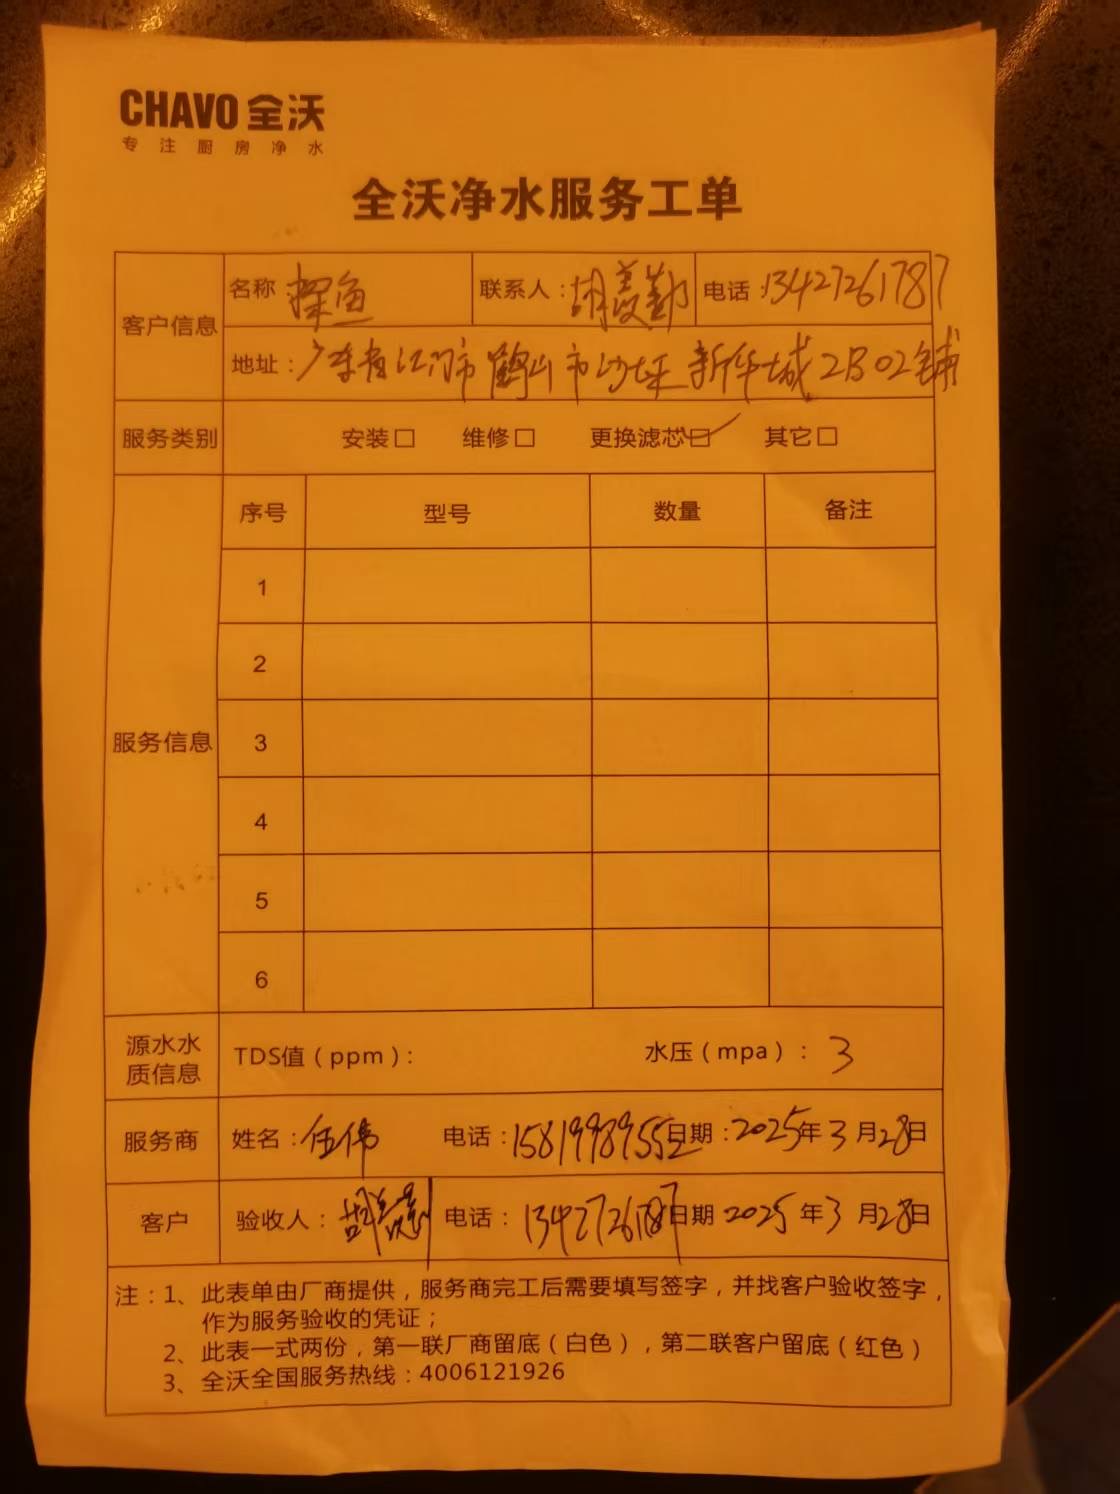 CHAVO 全沃
专注厨房净水
全沃净水服务工单
客户信息
名称 探鱼 联系人：胡 电话：13427261787
地址：广东省江门市鹤山市沙坪新华城2B02铺
服务类别 安装□ 维修□ 更换滤芯□✓ 其它□
服务信息
序号 型号 数量 备注
1
2
3
4
5
6
源水水质信息 TDS值（ppm）： 水压（mpa）：3
服务商 姓名：任伟 电话：15819989552 日期：2025年3月28日
客户 验收人：胡 电话：13427261787 日期 2025年3月28日
注：1、此表单由厂商提供，服务商完工后需要填写签字，并找客户验收签字，
作为服务验收的凭证；
2、此表一式两份，第一联厂商留底（白色），第二联客户留底（红色）
3、全沃全国服务热线：4006121926